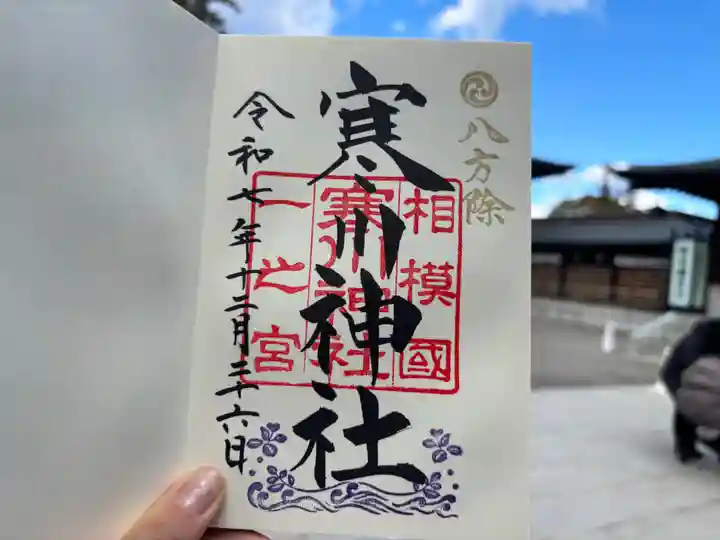 八方除
寒川神社
相模國
寒川神社
一之宮
令和七年十二月二十六日